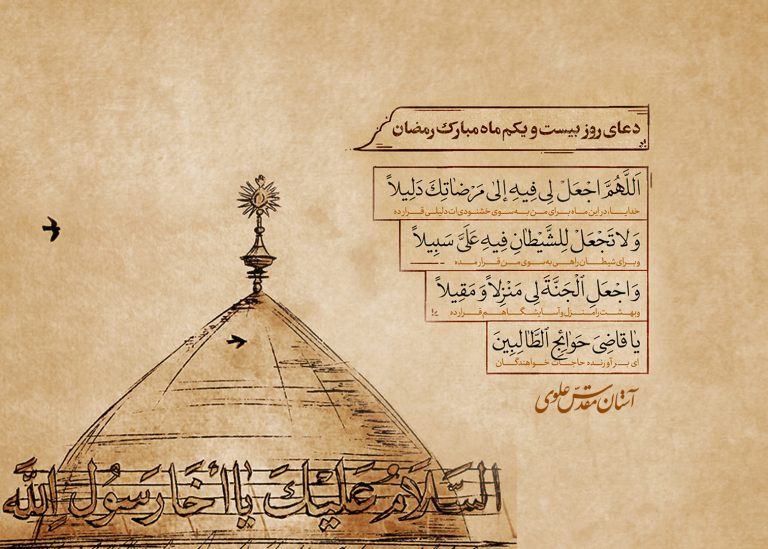 دعای روز بیست و یکم ماه مبارک رمضان
اَللَّهُمَّ اجْعَلْ لِي فِيهِ إِلىٰ مَرْضَاتِكَ دَلِيلاً
خدایا، در این ماه برای من به سوی خشنودی‌ات دلیلی قرار ده
وَ لا تَجْعَلْ لِلشَّيْطَانِ فِيهِ عَلَيَّ سَبِيلاً
و برای شیطان راهی به سوی من قرار مده
وَ اجْعَلِ ٱلْجَنَّةَ لِي مَنْزِلاً وَ مَقِيلاً
و بهشت را منزل و آسایشگاهم قرار ده
يَا قَاضِيَ حَوَائِجِ ٱلطَّالِبِينَ
ای برآورنده حاجات خواهندگان
آستان مقدّس علوی
السَّلَامُ عَلَيْكَ يَا أَخَا رَسُولِ اللَّهِ